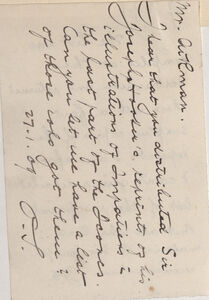 Mr. Aikman.
I hear that you distributed Sir
Joseph Hooker's reprints of his
illustrations of Impatiens in
the last part of the Icones.
Can you let me have a list
of those who got them?
27.1.09